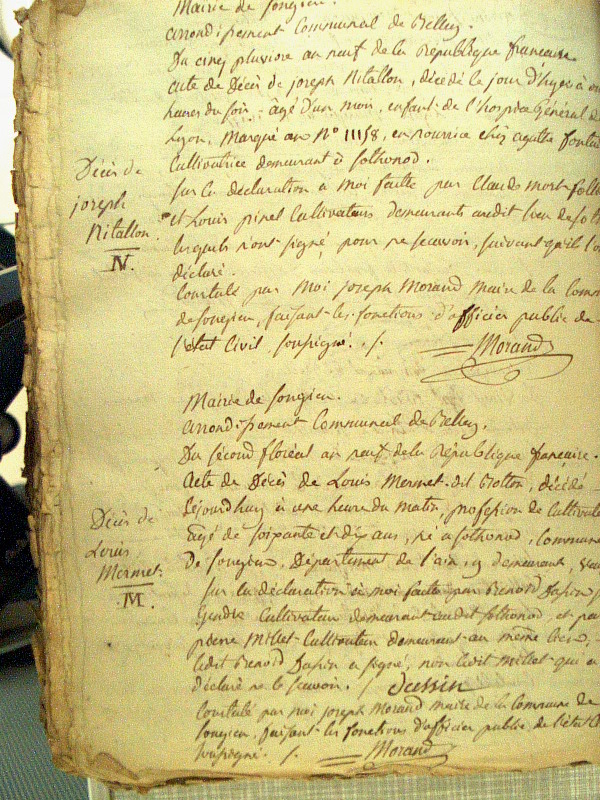 Mairie de Songieu.
arrondissement Communal de Belley.
Du cinq pluviose an neuf de la République francaise
acte de Décès de joseph Nitallon, décédé le jour d'hyer à
heures du soir, âgé D'un mois, enfant de l'hospice Général de
Lyon, Marqué au N° 11158, en nourrice chez agathe
Cultivatrice demeurant à Sothonod.
Décès de
joseph
Nitallon.
N.
Sur la déclaration à moi faitte par Claude
et Louis pinel Cultivateurs demeurants audit lieu de
lesquels n'ont signé pour ne scavoir, suivant qu'il l'
déclaré.
Constaté par Moi joseph Morand Maire de la Comm
de Songieu, faisant les fonctions d'officier public de
l'état Civil, soussigné. /.
Morand
Mairie de Songieu.
arrondissement Communal de Belley.
Du second floréal an neuf de la République francaise.
Acte de Décès de Louis Mermet dit décédé
cejourd'huy à une heure du matin, profession de Cultivate
âgé de soixante et dix ans, né à Sothonod, Commune
De Songieu, Département de l'ain, y demeurant,
Décès de
Louis
Mermet.
M.
sur la déclaration à moi faitte par Benoid
Gendre Cultivateur demeurant audit Sothonod, et pa
pierre Millet Cultivateur demeurant au même lieu,
ledit Benoid a signé, non ledit Millet qui a
déclaré ne le scavoir. /
Constaté par moi joseph Morand maire de la Commune de
Songieu, faisant les fonctions d'officier public de l'état
soussigné. /.
Morand